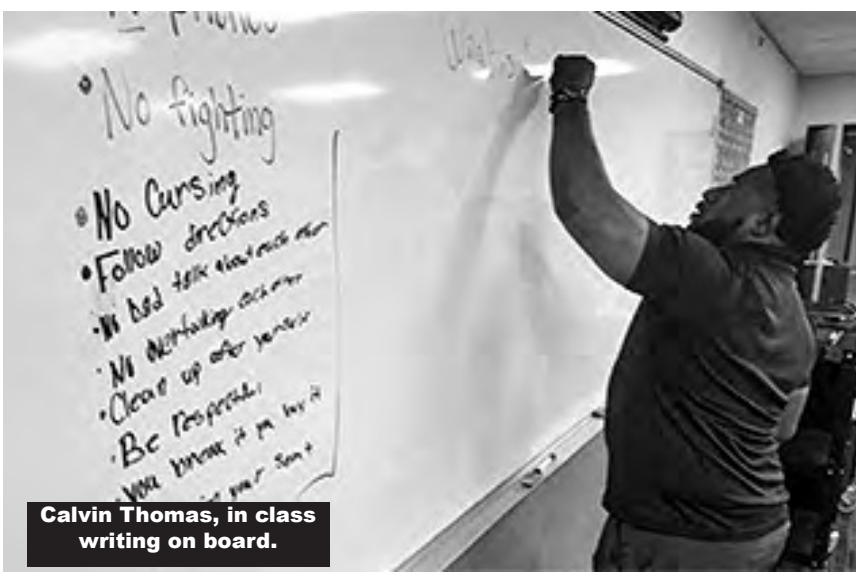 phones
• No fighting
• No Cursing
• Follow directions
• No bad talk about each other
• No each other
• Clean up after yourself
• Be respectful
• You know it you
your
Calvin Thomas, in class
writing on board.